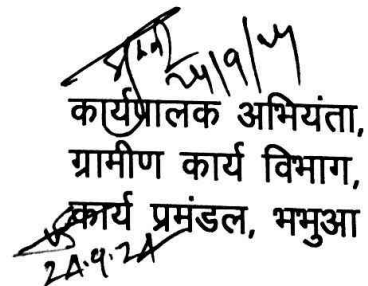 24/9/24
कार्यपालक अभियंता,
ग्रामीण कार्य विभाग,
कार्य प्रमंडल, भभुआ
24.9.24